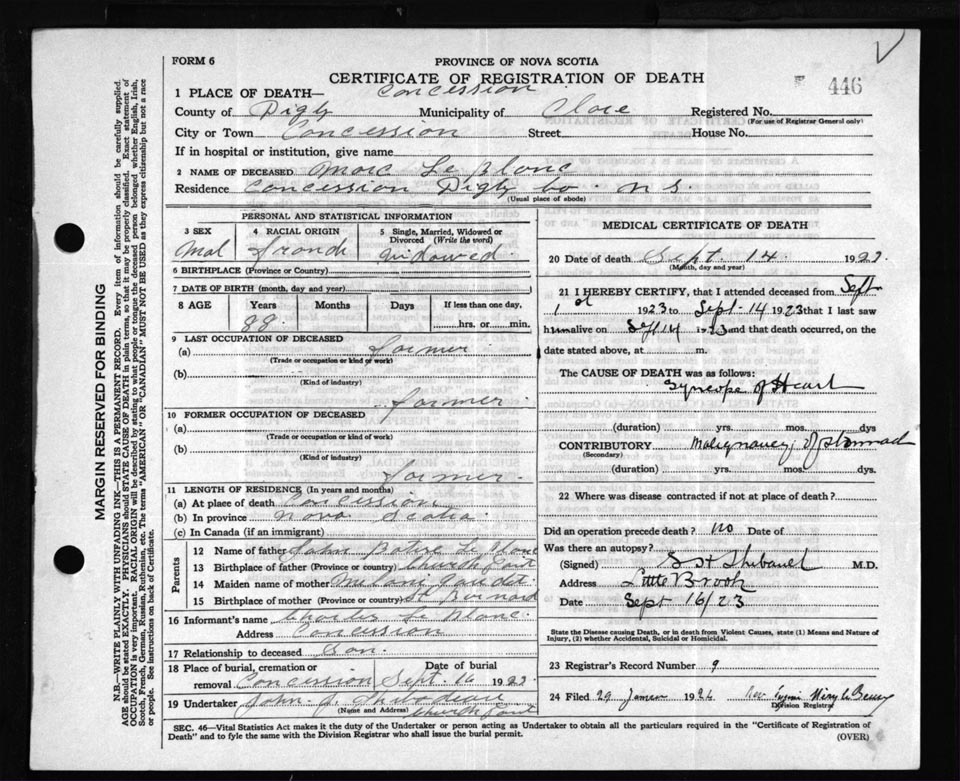 FORM 6
PROVINCE OF NOVA SCOTIA
CERTIFICATE OF REGISTRATION OF DEATH
446
1 PLACE OF DEATH— Concession
County of Digby Municipality of Clare Registered No.
(For use of Registrar General only)
City or Town Concession Street House No.
If in hospital or institution, give name
2 NAME OF DECEASED Marc Le Blanc
Residence Concession Digby Co. N S.
(Usual place of abode)
PERSONAL AND STATISTICAL INFORMATION
3 SEX 4 RACIAL ORIGIN 5 Single, Married, Widowed or Divorced (Write the word)
Mal Franch Widowed
6 BIRTHPLACE (Province or Country)
7 DATE OF BIRTH (month, day and year)
8 AGE Years Months Days If less than one day,
88 hrs. or min.
9 LAST OCCUPATION OF DECEASED
(a) farmer
(Trade or occupation or kind of work)
(b)
(Kind of industry)
farmer
10 FORMER OCCUPATION OF DECEASED
(a)
(Trade or occupation or kind of work)
(b)
(Kind of industry)
farmer
11 LENGTH OF RESIDENCE (In years and months)
(a) At place of death Concession
(b) In province Nova Scotia
(c) In Canada (if an immigrant)
Parents
12 Name of father John Le Blanc
13 Birthplace of father (Province or country) Church Point
14 Maiden name of mother Melani Gaudet
15 Birthplace of mother (Province or country) St Barnard
16 Informant's name Charles Le Blanc.
Address Concession
17 Relationship to deceased Son.
18 Place of burial, cremation or removal Concession Date of burial Sept. 16 1923
19 Undertaker John J. Thibodeau
(Name and Address) Church Point
MEDICAL CERTIFICATE OF DEATH
20 Date of death Sept. 14. 1923.
(Month, day and year)
21 I HEREBY CERTIFY, that I attended deceased from Sept
1 st 1923 to Sept 14 1923 that I last saw
him alive on Sept 14 1923 and that death occurred, on
date stated above, at m.
The CAUSE OF DEATH was as follows:
Syncope of Heart
(duration) yrs. mos. dys.
CONTRIBUTORY Malignancy of Stomach
(Secondary)
(duration) yrs. mos. dys.
22 Where was disease contracted if not at place of death?
Did an operation precede death? no Date of
Was there an autopsy?
(Signed) S H Thibault M.D.
Address Little Brook
Date Sept 16/23
State the Disease causing Death, or in death from Violent Causes, state (1) Means and Nature of
Injury, (2) whether Accidental, Suicidal or Homicidal.
23 Registrar's Record Number 9
24 Filed 29 1924
Division Registrar
SEC. 46—Vital Statistics Act makes it the duty of the Undertaker or person acting as Undertaker to obtain all the particulars required in the "Certificate of Registration of
Death" and to fyle the same with the Division Registrar who shall issue the burial permit.
(OVER)
MARGIN RESERVED FOR BINDING
N.B.—WRITE PLAINLY WITH UNFADING INK—THIS IS A PERMANENT RECORD. Every item of information should be carefully supplied.
AGE should be stated EXACTLY. PHYSICIANS should STATE CAUSE OF DEATH in plain terms, so that it may be properly classified. Exact statement of
OCCUPATION is very important. RACIAL ORIGIN will be described by stating to what people or tongue the deceased person belonged whether English, Irish,
Scotch, French, German, Russian, Ruthenian, etc. The terms "AMERICAN" OR "CANADIAN" MUST NOT BE USED as they express citizenship but not a race
or people. See instructions on back of Certificate.